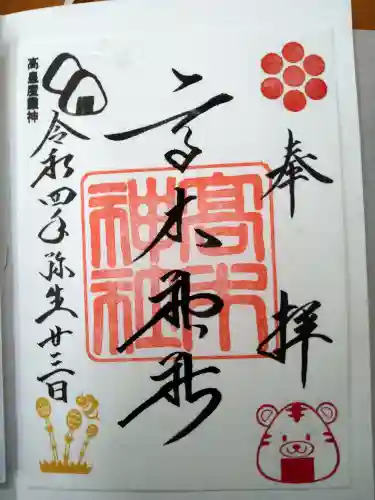 奉拝
髙木神社
髙木神社
令和四年弥生廿三日
高皇産靈神